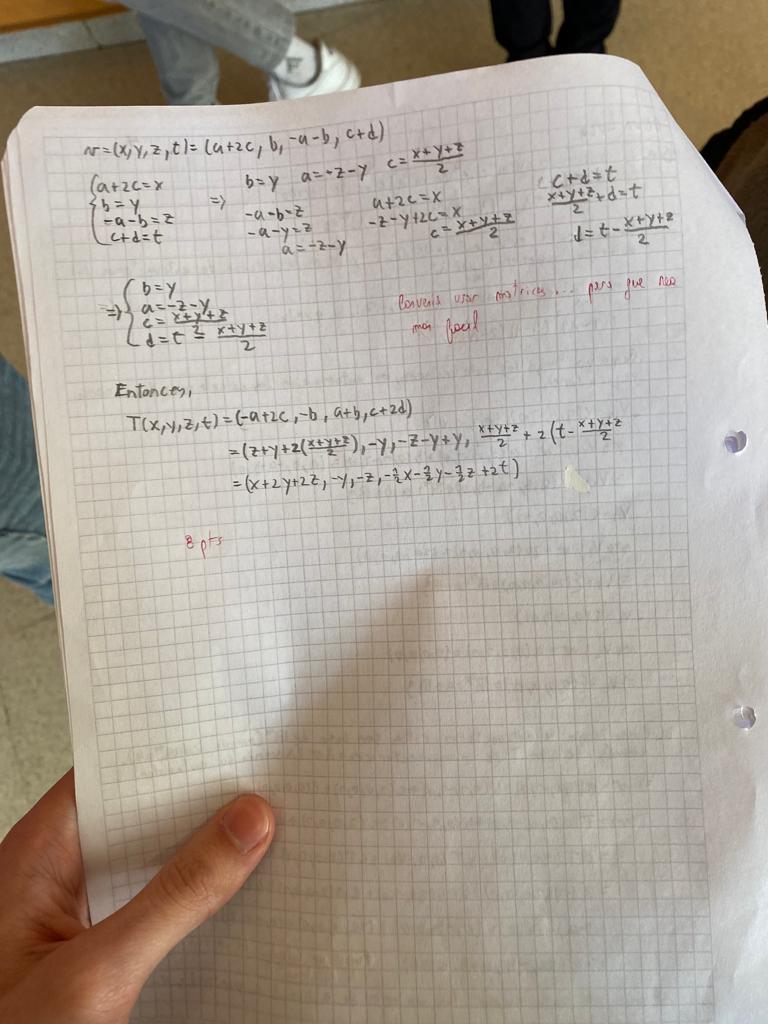 v=(x,y,z,t)=(a+2c, b, -a-b, c+d)
{a+2c=x
b=y
-a-b=z
c+d=t
=>
b=y a=-z-y c=\frac{x+y+z}{2}
-a-b=z
-a-y=z
a=-z-y
a+2c=x
-z-y+2c=x
c=\frac{x+y+z}{2}
c+d=t
\frac{x+y+z}{2}+d=t
d=t-\frac{x+y+z}{2}
=> {b=y
a=-z-y
c=\frac{x+y+z}{2}
d=t-\frac{x+y+z}{2}
usar matrices... para que sea
mas facil
Entonces,
T(x,y,z,t)=(-a+2c, -b, a+b, c+2d)
=(z+y+2(\frac{x+y+z}{2}), -y, -z-y+y, \frac{x+y+z}{2}+2(t-\frac{x+y+z}{2}
=(x+2y+2z, -y, -z, -\frac{1}{2}x-\frac{1}{2}y-\frac{1}{2}z+2t)
8 pts